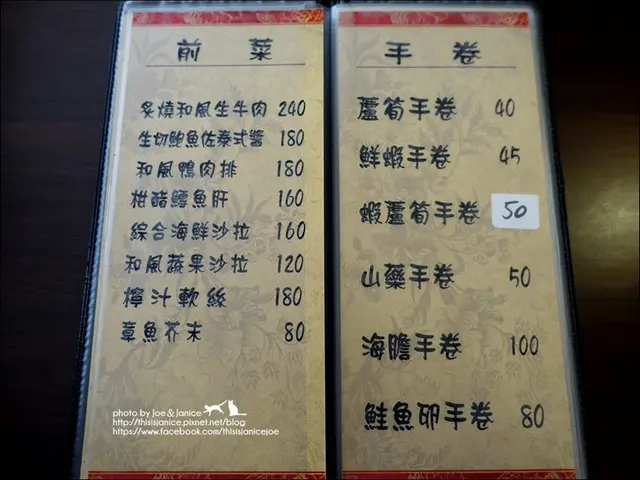 前菜
炙燒和風生牛肉 240
生切鮑魚佐泰式醬 180
和風鴨肉排 180
柑醋鱈魚肝 160
綜合海鮮沙拉 160
和風蔬果沙拉 120
檸汁軟絲 180
章魚芥末 80
photo by Joe & Janice
http://thisisjanice.pixnet.net/blog
https://www.facebook.com/thisisjanicejoe
手卷
蘆筍手卷 40
鮮蝦手卷 45
蝦蘆筍手卷 50
山藥手卷 50
海膽手卷 100
鮭魚卵手卷 80